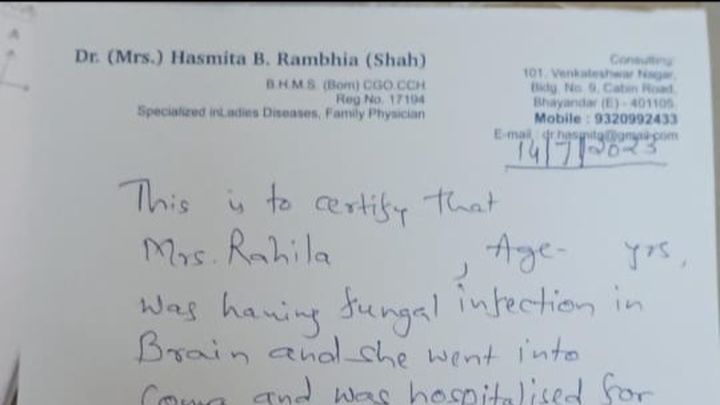 Dr. (Mrs.) Hasmita B. Rambhia (Shah)
B.H.M.S. (Bom) CGO.CCH
Reg No. 17194
Specialized inLadies Diseases, Family Physician
Consulting
101, Venkateshwar Nagar,
Bldg. No. 9, Cabin Road,
Bhayandar (E) - 401105.
Mobile : 9320992433
E-mail : dr.hasmita@gmail.com
14/7/2023
This is to certify that
Mrs. Rahila , Age- yrs,
was having fungal infection in
Brain and she went into
Coma and was hospitalised for